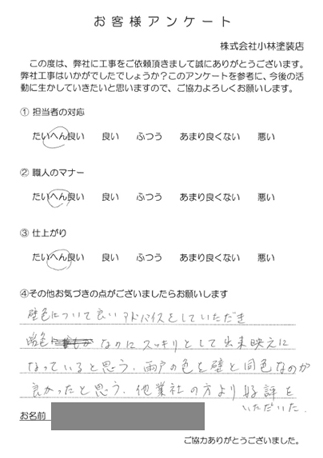 お客様アンケート
株式会社小林塗装店
この度は、弊社に工事をご依頼頂きまして誠にありがとうございます。
弊社工事はいかがでしたでしょうか？このアンケートを参考に、今後の活
動に生かしていきたいと思いますので、ご協力よろしくお願いします。
① 担当者の対応
たいへん良い 良い ふつう あまり良くない 悪い
② 職人のマナー
たいへん良い 良い ふつう あまり良くない 悪い
③ 仕上がり
たいへん良い 良い ふつう あまり良くない 悪い
④その他お気づきの点がございましたらお願いします
壁色について良いアドバイスをしていただき
なのにスッキリとして出来映えに
なっていると思う．雨戸の色を壁と同色なのが
良かったと思う．他業社の方より好評を
いただいた．
お名前
ご協力ありがとうございました。